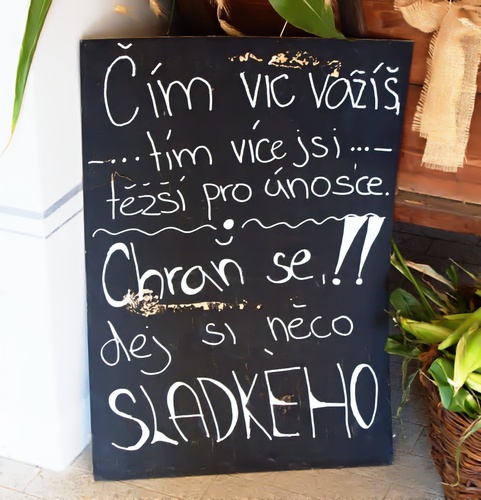 Čím víc vážíš
-...tím více jsi...-
těžší pro únosce.
Chraň se,!!
dej si něco
SLADKÉHO